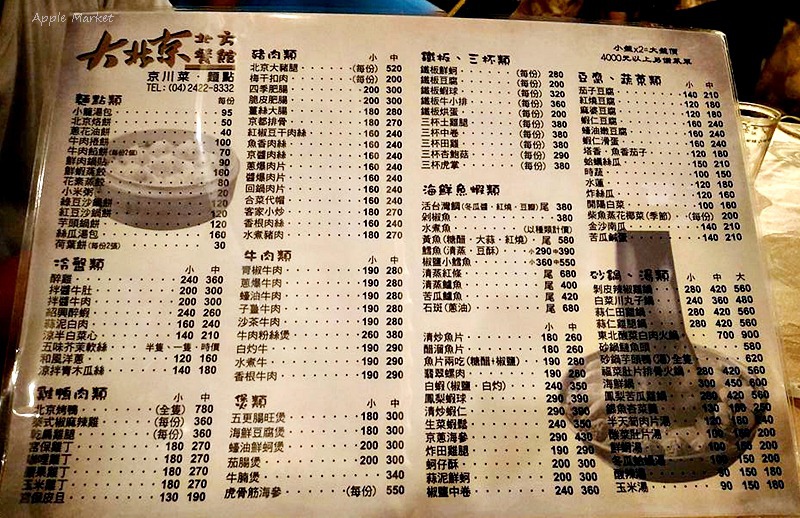 Apple Market
大北京 北方餐館
京川菜．麵點
TEL: (04) 2422-8332
小盤x2=大盤價
4000元以上另備菜單
麵點類 每份
小籠湯包 95
北京焙餅 50
蔥花油餅 40
牛肉捲餅 100
牛肉餡餅(每份2個) 70
鮮肉鍋貼 90
鮮蝦蒸餃 160
花素蒸餃 80
小米粥 20
綠豆沙鍋餅 120
紅豆沙鍋餅 120
芋頭鍋餅 120
絲瓜湯包 160
荷葉餅(每份2張) 30
冷盤類 小 中
醉雞 240 360
拌牛肚 200 300
醬牛肉 200 300
紹興醉蝦 240 260
蒜泥白肉 160 240
涼半白菜心 140 210
五味芥茉軟絲 半隻‧一隻‧時價
和風洋蔥 120 160
涼拌青木瓜絲 140 180
雞鴨肉類 小 中
北京烤鴨 (全隻) 780
泰式椒麻雞 (每份) 360
乾扁雞腿 (每份) 360
宮保雞丁 180 270
雞丁 180 270
雞丁 180 270
玉米雞丁 180 270
宮保皮旦 130 190
豬肉類 小 中
北京大豬腿 (每份) 520
梅干扣肉 (每份) 200
四季肥腸 200 300
脆皮肥腸 200 300
薑絲大腸 180 280
京都排骨 180 270
紅椒豆干肉絲 160 240
魚香肉絲 160 240
京醬肉絲 160 240
蔥爆肉片 160 240
醬爆肉片 160 240
回鍋肉片 160 240
合菜代帽 160 240
客家小炒 180 270
香根肉絲 160 240
水煮豬肉 180 270
牛肉類 小 中
青椒牛肉 190 280
蔥爆牛肉 190 280
蠔油牛肉 190 280
子薑牛肉 190 280
沙茶牛肉 190 280
牛肉粉絲煲 260 380
白灼牛 190 290
水煮牛 190 290
香根牛肉 190 280
煲類 小 中
五更腸旺煲 180 300
海鮮豆腐煲 180 300
蠔油鮮蚵煲 200 300
茄腸煲 200 300
牛腩煲 340
虎骨筋海參 (每份) 550
鐵板、三杯類
鐵板鮮蚵 (每份) 280
鐵板豆腐 (每份) 200
鐵板蝦球 (每份) 320
鐵板牛小排 (每份) 360
鐵板烘蛋 (每份) 200
三杯土雞腿 (每份) 380
三杯中卷 (每份) 380
三杯田雞 (每份) 380
三杯杏鮑菇 (每份) 290
三杯虎掌 (每份) 380
海鮮魚蝦類
活台灣鯛(冬瓜醬‧紅燒‧豆瓣)尾 380
剁椒魚 尾 380
水煮魚 (以種類計價)
黃魚(糖醋‧大蒜‧紅燒) 尾 580
鱈魚(清蒸‧豆酥) 小290 中390
椒鹽小鱈魚 小360 中550
清蒸紅條 尾 680
清蒸鱸魚 尾 400
苦瓜鱸魚 尾 420
石斑(蔥油) 尾 680
小 中
清炒魚片 180 260
醋溜魚片 180 260
魚片兩吃(糖醋+椒鹽) 190 280
翡翠螺肉 190 280
白蝦(椒鹽‧白灼) 240 350
鳳梨蝦球 290 390
清炒蝦仁 290 390
生菜蝦鬆 240 350
京蔥海參 290 430
炸田雞腿 200 300
蚵仔酥 200 300
蒜泥鮮蚵 200 300
椒鹽中卷 240 360
豆腐、蔬菜類 小 中
茄子豆腐 140 210
紅燒豆腐 120 180
麻婆豆腐 120 180
蝦仁豆腐 160 240
蠔油嫩豆腐 160 240
蝦仁滑蛋 160 240
塔香‧魚香茄子 120 180
蛤蠣絲瓜 150 210
時蔬 100 150
水蓮 120 180
炸絲瓜 120 160
開陽白菜 100 160
柴魚蒸花椰菜(季節) (每份) 200
金沙南瓜 140 210
苦瓜鹹蛋 140 210
砂鍋、湯類 小 中 大
剝皮辣椒雞鍋 280 420 560
白菜川丸子鍋 240 360 480
蒜仁田雞鍋 280 420 560
蒜仁雞腿鍋 280 420 560
東北酸菜白肉火鍋 700 900
砂鍋鰱魚頭 580
砂鍋芋頭鴨(湯)全隻 620
福菜肚片排骨火鍋 280 420 560
海鮮鍋 300 450 600
鳳梨苦瓜雞鍋 280 420 560
半天筍肉片湯
酸菜肚片湯
鮮蚵湯
苦瓜蛤蠣湯
酸辣湯 90 150 180
玉米湯 90 150 180